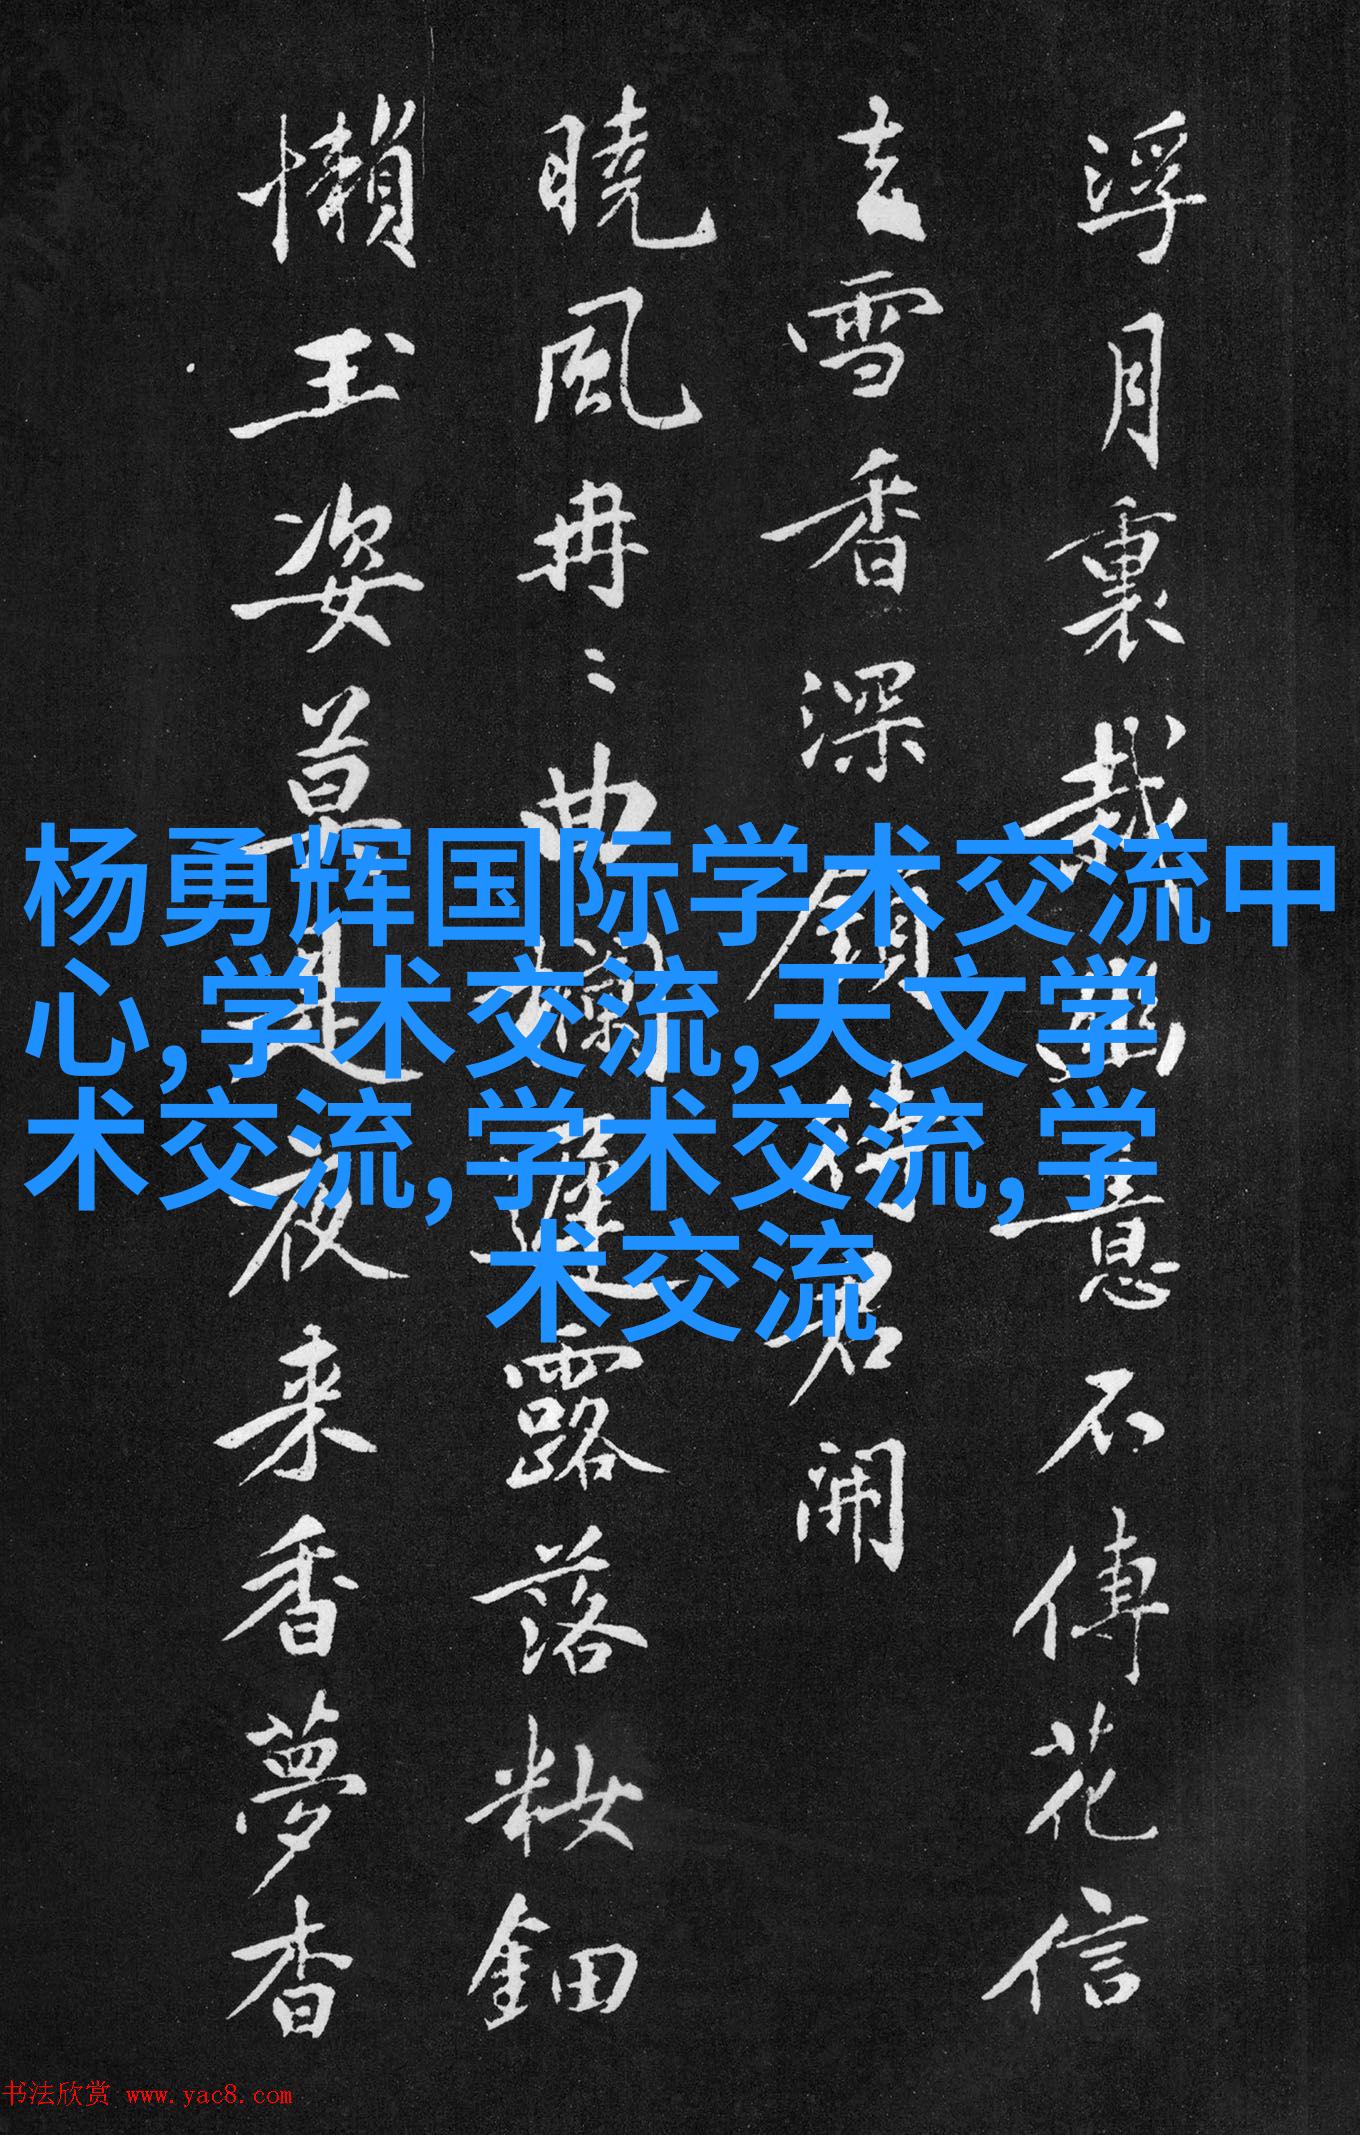 浮月裏裁幽意不傳花信
去雪香深鎖待君開
曉風冉〻曲欄礙遲露落粧鈿
懶玉姿莫是夜来香夢杳
杨勇辉国际学术交流中
心,学术交流,天文学
术交流,学术交流,学
术交流
书法欣赏 www.yac8.com